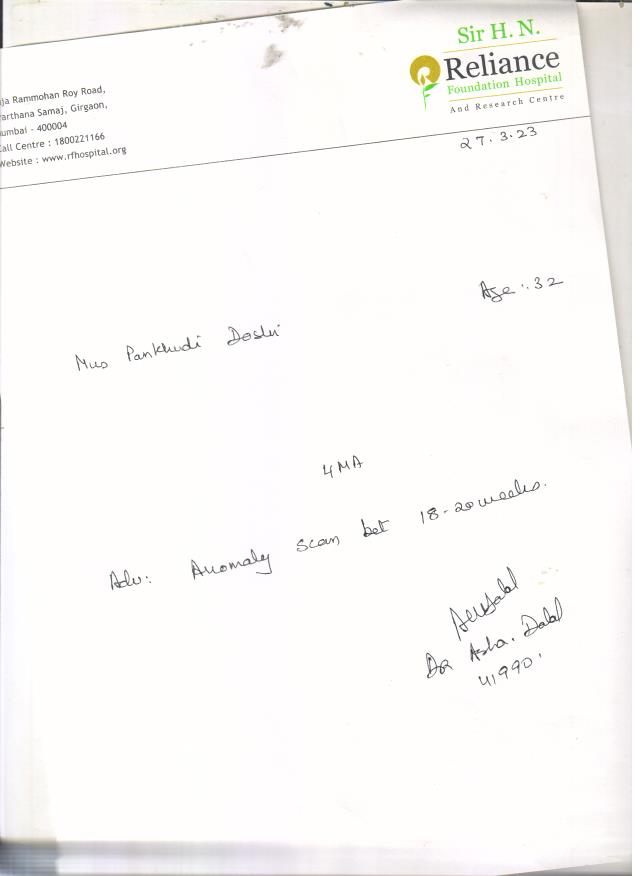 Sir H. N.
Reliance
Foundation Hospital
And Research Centre
ja Rammohan Roy Road,
arthana Samaj, Girgaon,
umbai - 400004
Call Centre : 1800221166
Website : www.rfhospital.org
27.3.23
Age : 32
Mrs Pankhudi Doshi
4 MA
Adv: Anomaly scan bet 18-20 weeks.
Dr Asha. Dalal
41990.